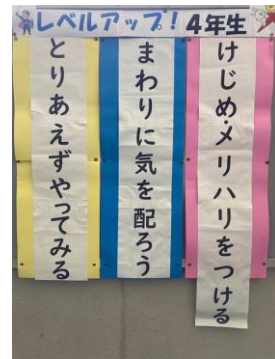 レベルアップ!4年生
けじめ・メリハリをつける
まわりに気を配ろう
とりあえずやってみる